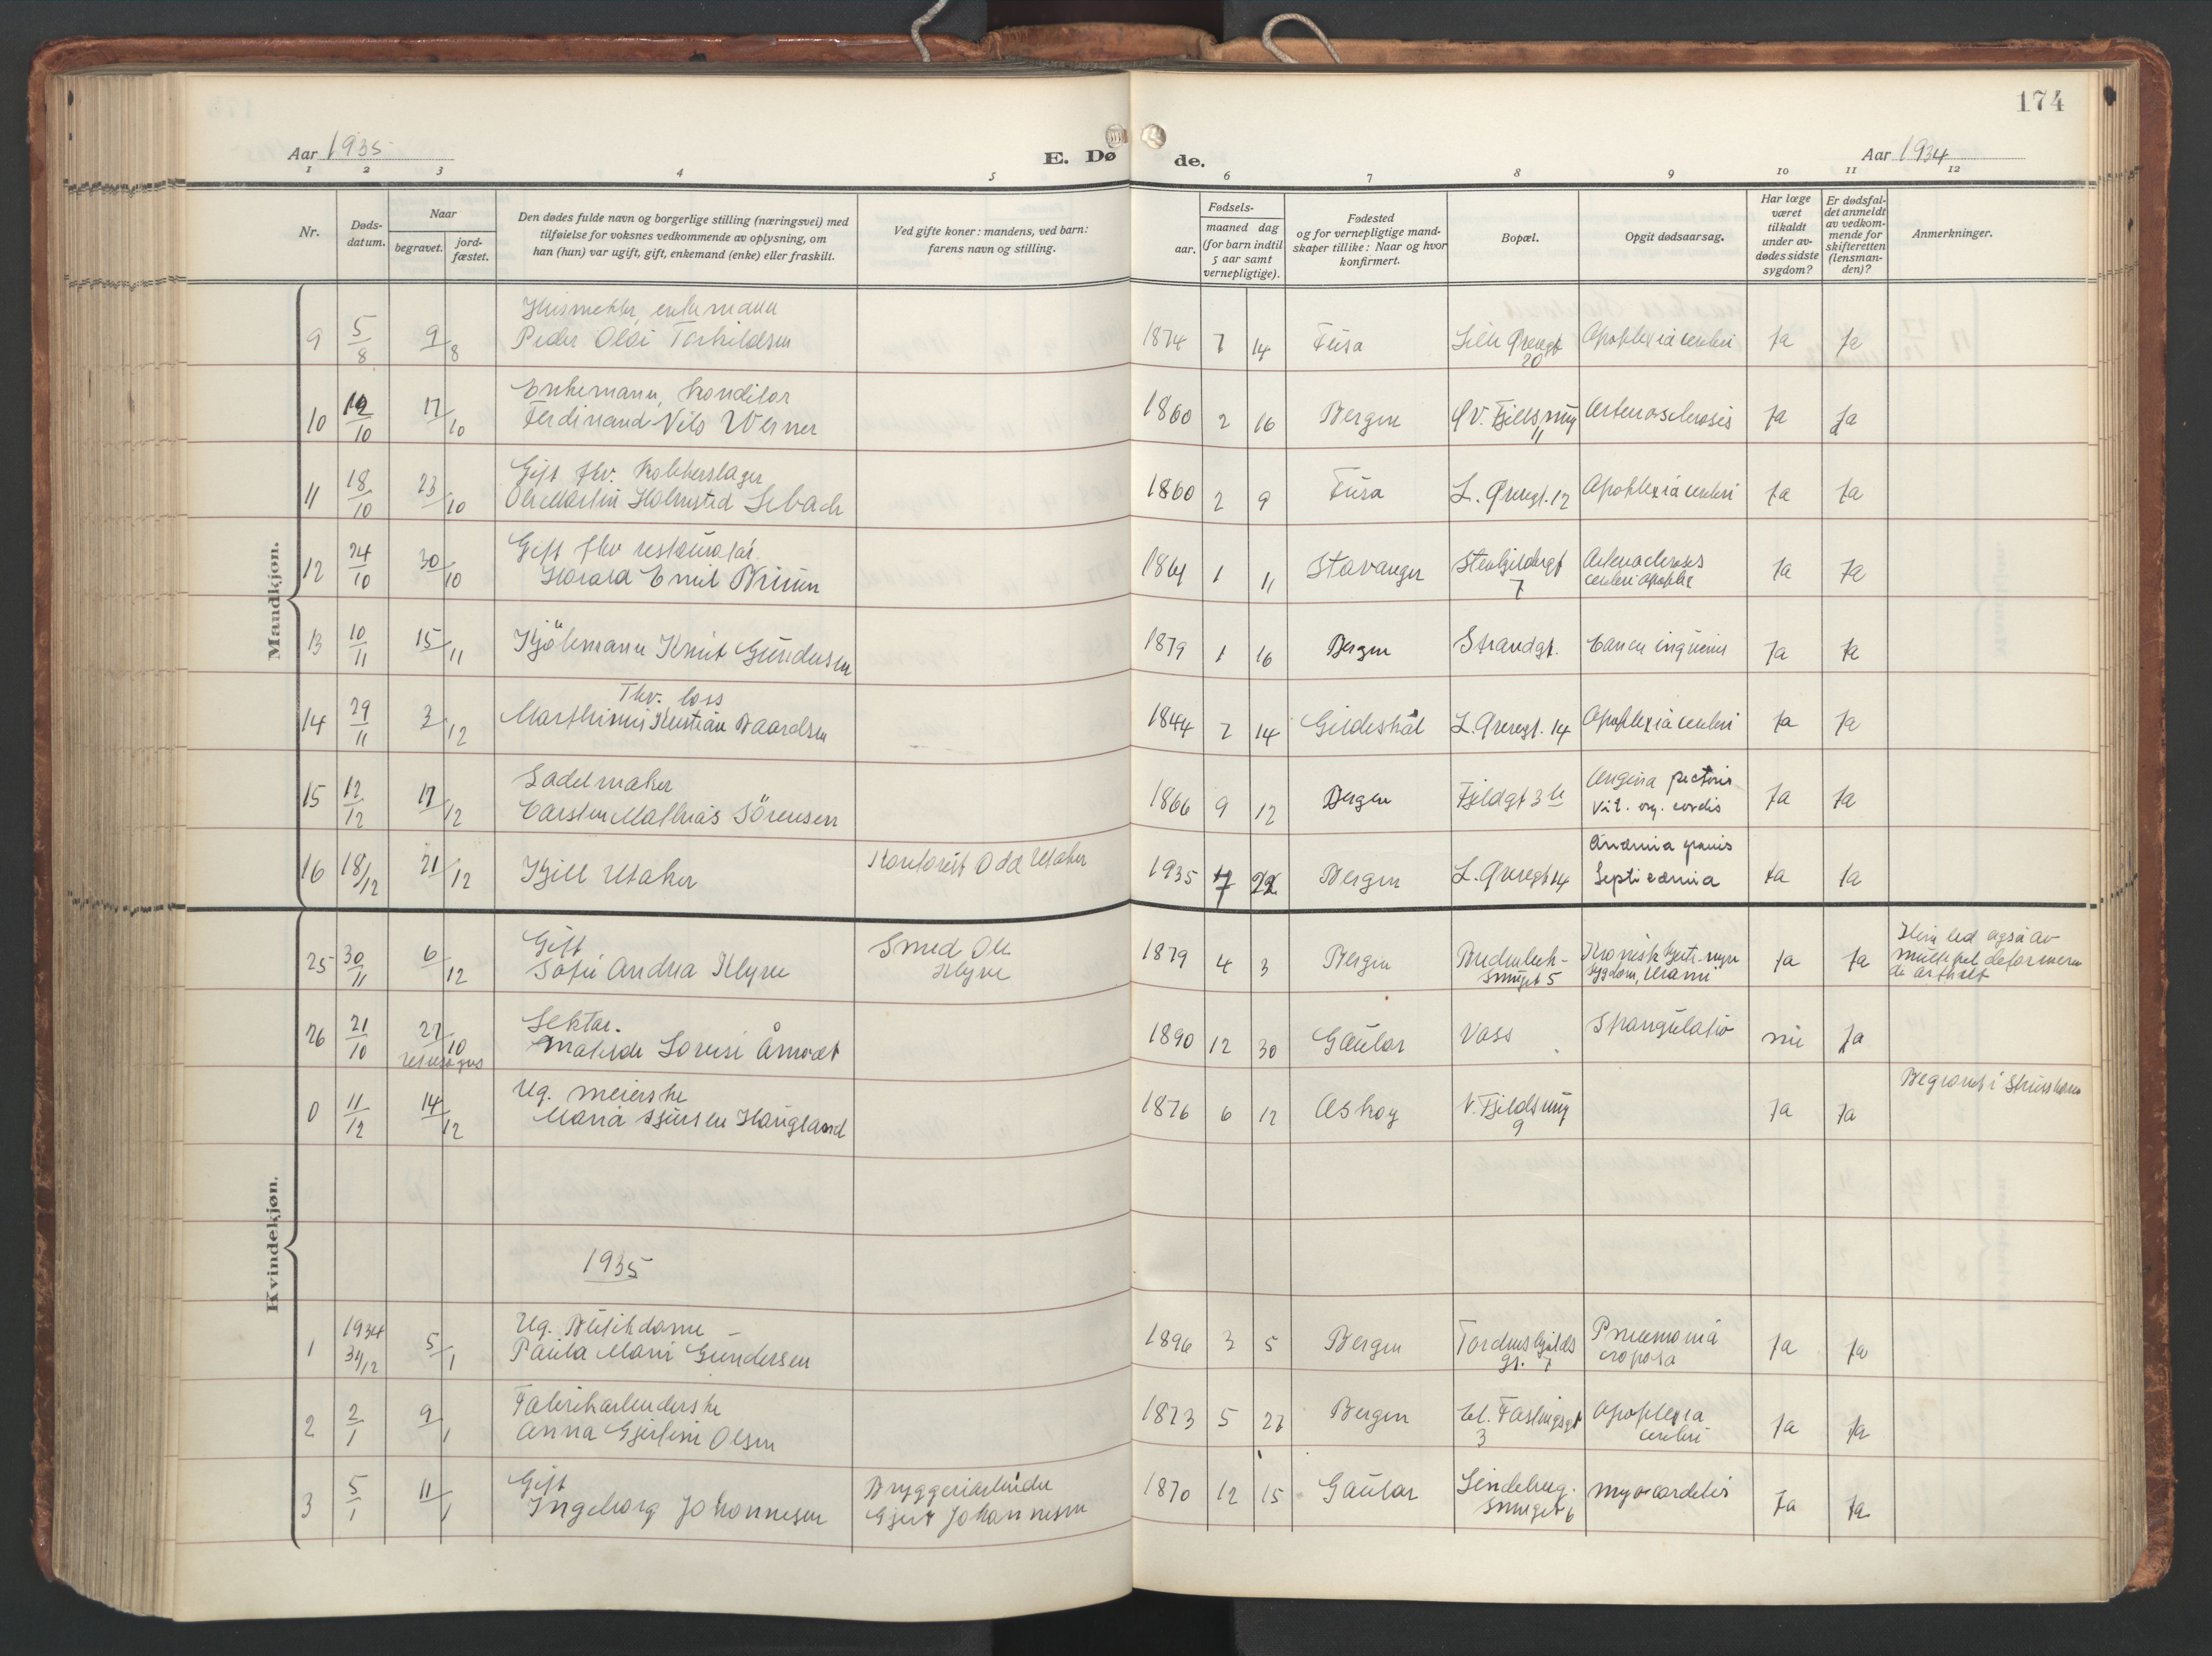 174
Aar 1935
E. Dø
de.
Aar 1934
1 2 3 4 5 6 7 8 9 10 11 12
Nr.
Døds-
datum.
Naar
begravet.
jord-
fæstet.
Den dødes fulde navn og borgerlige stilling (næringsvei) med
tilføielse for voksnes vedkommende av oplysning, om
han (hun) var ugift, gift, enkemand (enke) eller fraskilt.
Ved gifte koner: mandens, ved barn:
farens navn og stilling.
Fødsels-
aar.
maaned dag
(for barn indtil
5 aar samt
vernepligtige).
Fødested
og for vernepligtige mand-
skaper tillike: Naar og hvor
konfirmert.
Bopæl.
Opgit dødsaarsag.
Har læge
været
tilkaldt
under av-
dødes sidste
sygdom?
Er dødsfal-
det anmeldt
av vedkom-
mende for
skifteretten
(lensman-
den)?
Anmerkninger.
Mandkjøn.
enkemann
9 5/8 9/8 Peder Olai Torkildsen 1874 7 14 Fusa Lille Øvregt 20 Apoplexia cerebri Ja Ja
Enkemann, Konditor
10 12/10 17/10 Ferdinand Nils Werner 1860 2 16 Bergen Øv. Fjellsmug 11 Arteriosclerosis Ja Ja
Gift fhv. Kobberslager
11 18/10 23/10 Ole Martin Holmsted Sebach 1860 2 9 Fusa L. Øvregt. 12 Apoplexia cerebri Ja Ja
Gift fhv restauratør.
12 24/10 30/10 Harald Emil 1861 1 11 Stavanger Stenkjeldergt 7 Ja Ja
13 10/11 15/11 Kjöbmann Knut Gundersen 1879 1 16 Bergen Strandgt. Cancer Ja Ja
Fhv. loss
14 29/11 3/12 Marthinus Kristian Baardsen 1844 7 14 Gildeskål L. Øvregt. 14 Apoplexia cerebri Ja Ja
Sadelmaker
15 12/12 17/12 Carsten Mathias Sörensen 1866 9 12 Bergen Fjeldgt 3 Angina pectoris
Vit. org. cordis Ja Ja
16 18/12 21/12 Kjell Utaker Kontorist Odd Utaker 1935 7 22 Bergen L. Øvregt 14 Anæmia gravis
Septicæmia Ja Ja
Kvindekjøn.
Gift
25 30/11 6/12 Sofie Andrea Klyve Smed Ole
Klyve 1879 4 3 Bergen smuget 5 Kronisk hjerte-nyre
sygdom, Urami Ja Ja Hun led også av
multipel deformeren
de artritt
Sektar.
26 21/10 27/10 Matilde Lovise 1890 12 30 Gaular Voss Strangulatio nei Ja
Ug. meierske
0 11/12 14/12 Maria Haugland 1876 6 12 Askøy V. Fjeldsmug 9 Ja Ja Begravet i
1935
1934
Ug. Butikdame
1 31/12 5/1 Paula Marie Gundersen 1896 3 5 Bergen Tordenskjolds
gt. 7 Pneumonia
croposa Ja Ja
Fabrikarbeiderske
2 2/1 9/1 Anna Gjertine Olsen 1873 5 27 Bergen 3 Apoplexia
cerebri Ja Ja
Gift
3 5/1 11/1 Ingeborg Johannesen Bryggeriarbeider
Gjert Johannesen 1870 12 15 Gaular smuget 6 Myocarditis Ja Ja